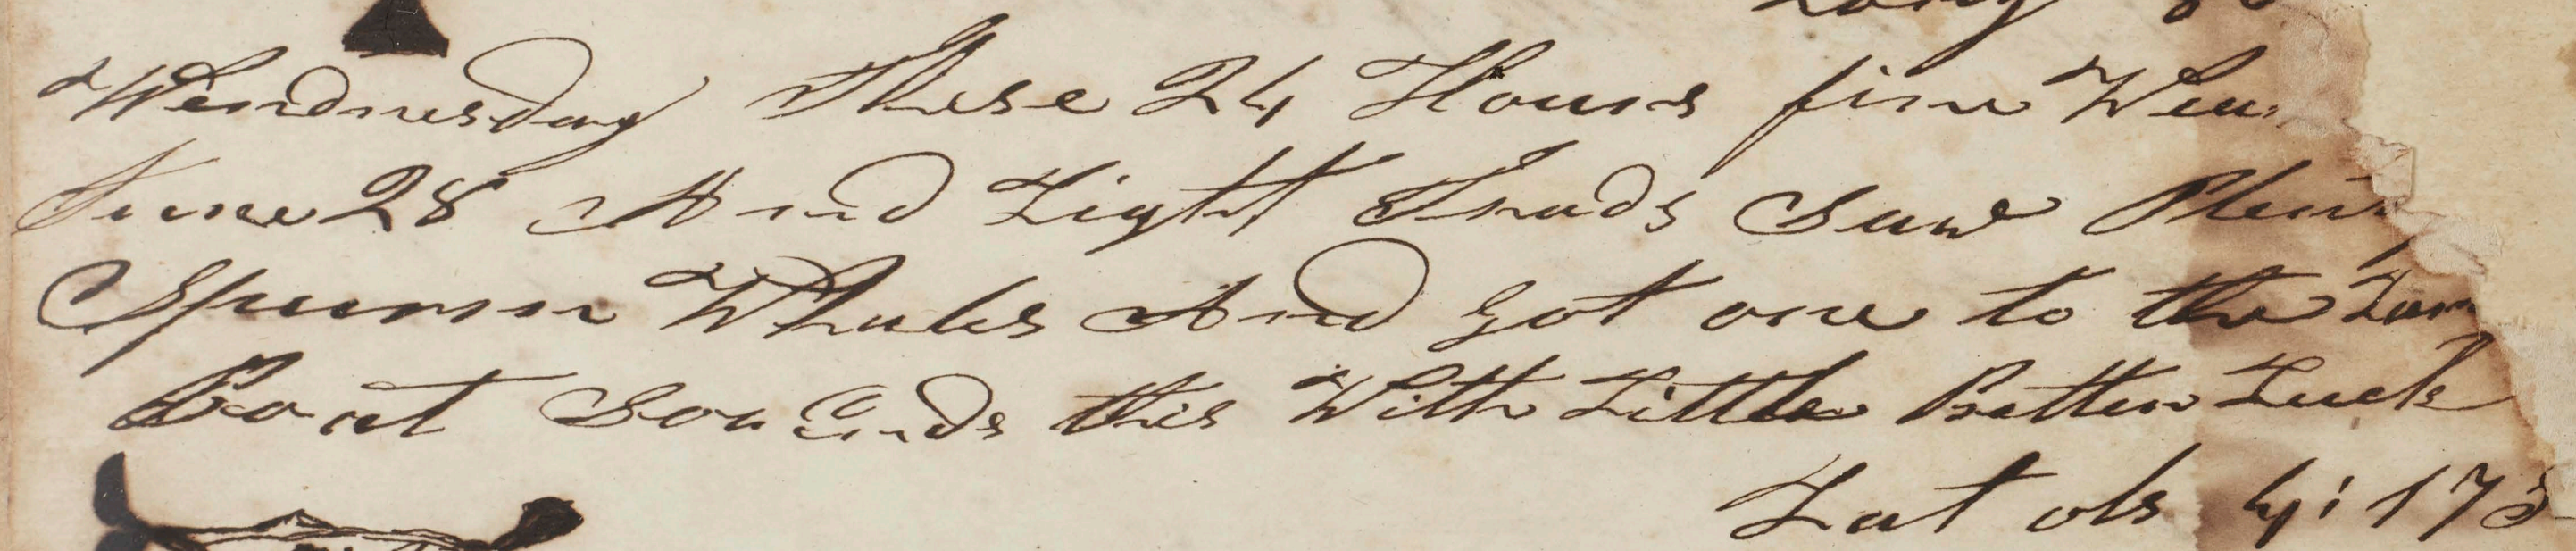 Long
Wendnesday These 24 Hours fine Wea
June 28 And Light Trads Saw Plenty
Spurm Whales And got one to the Larn
Boat So Ends this With Little Better Luck
Lat obs 4:17 S